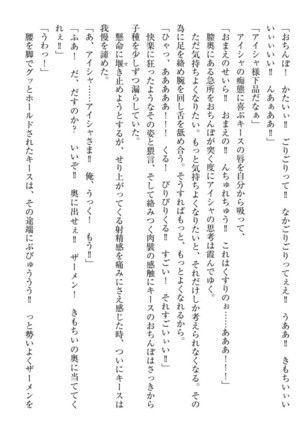 「おちんぽ！　かたいぃ‼　ごりごりりって‼　なかごりごりってぇぇ‼　うああ‼　きもちぃぃい
いぃぃぃい‼　んあぁああ‼」
「アイシャ様下品だなぁ」
アイシャの痴態に喜ぶキースの唇を自分から吸って、
「おまえのせいらぁ‼　おまえの‼　んちゅれちゅう‼　これはくすりのぉ……ああああ！！！」
膣奥にある急所をおちんぽが突く度にアイシャの思考は霞んでゆく。
ただ気持ちよくなりたい。もっと気持ちよくなりたいと、それだけしか考えられなくなる。その
為に足を絡め腕を回し舌を舐め合う。そうすればもっと、もっとよくなれるから。
「ひゃっ、あああああ！！！　くる！　びりびりくる‼　すごい！　それすごいぃい‼」
快楽に狂ったようなその姿と猥言、そして絡みつく肉襞の感触にキースのおちんぽはさっきから
子種を少しずつ漏らしていた。
懸命に堰き止めようとするが、せり上がってくる射精感を痛みにさえ感じた時、ついにキースは
我慢を諦めた。
「あ、アイシャ……アイシャさま‼　俺、うっく！　もう‼」
「ふあ！　だ、だすのか？　いいぞ‼　奥に出せぇ‼　ザーメン！　きもちいの奥に当ててく
れぇ‼」
「わっ！」
腰を脚でグッとホールドされたキースは、その途端にぶぴゅううう‼　っと勢いよくザーメンを